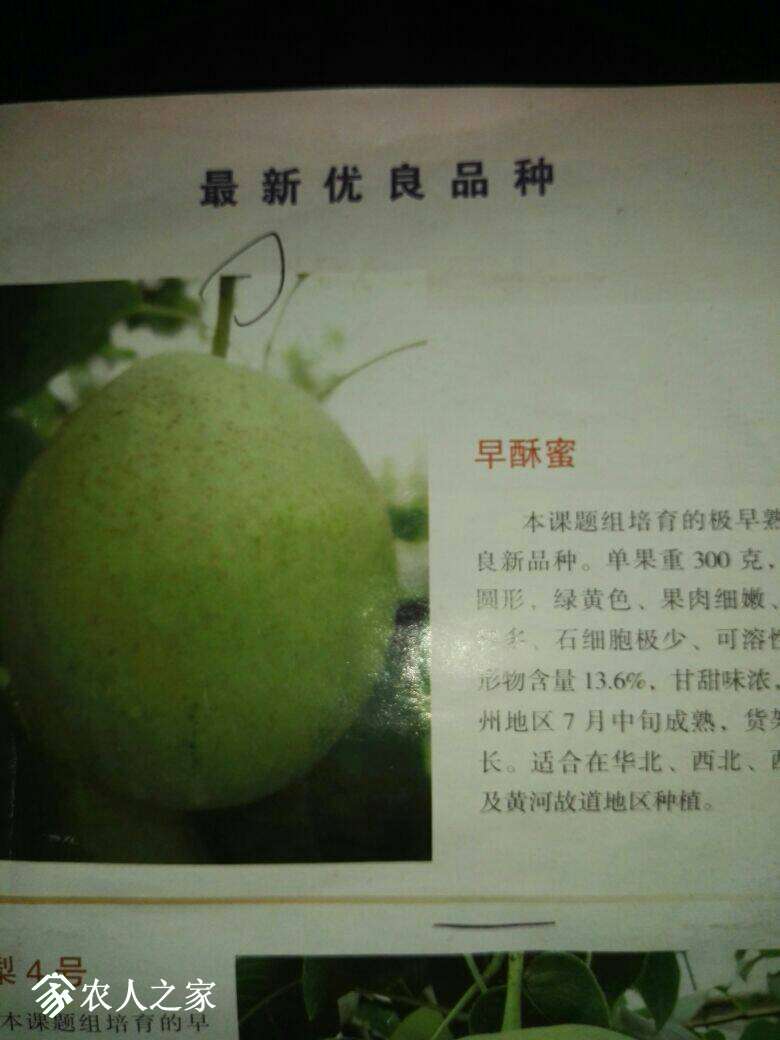 最新优良品种
早酥蜜
本课题组培育的极早熟
良新品种。单果重300克，
圆形，绿黄色、果肉细嫩、
石细胞极少、可溶性
形物含量13.6%，甘甜味浓，
州地区7月中旬成熟，货架
长。适合在华北、西北、西
及黄河故道地区种植。
梨4号
本课题组培育的早
农人之家